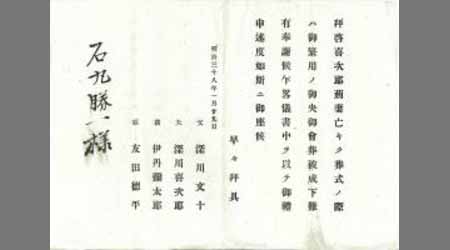 拝啓喜次郎荊妻亡キク葬式ノ際
ハ御繁用ノ御央御會葬被成下難
有奉謝候乍畧儀書中ヲ以テ御禮
申述度如斯ニ御座候
早々拝具
明治三十八年一月廿九日
父 深川文十
夫 深川喜次郎
親 伊丹彌太郎
戚 友田德平
石丸勝一様